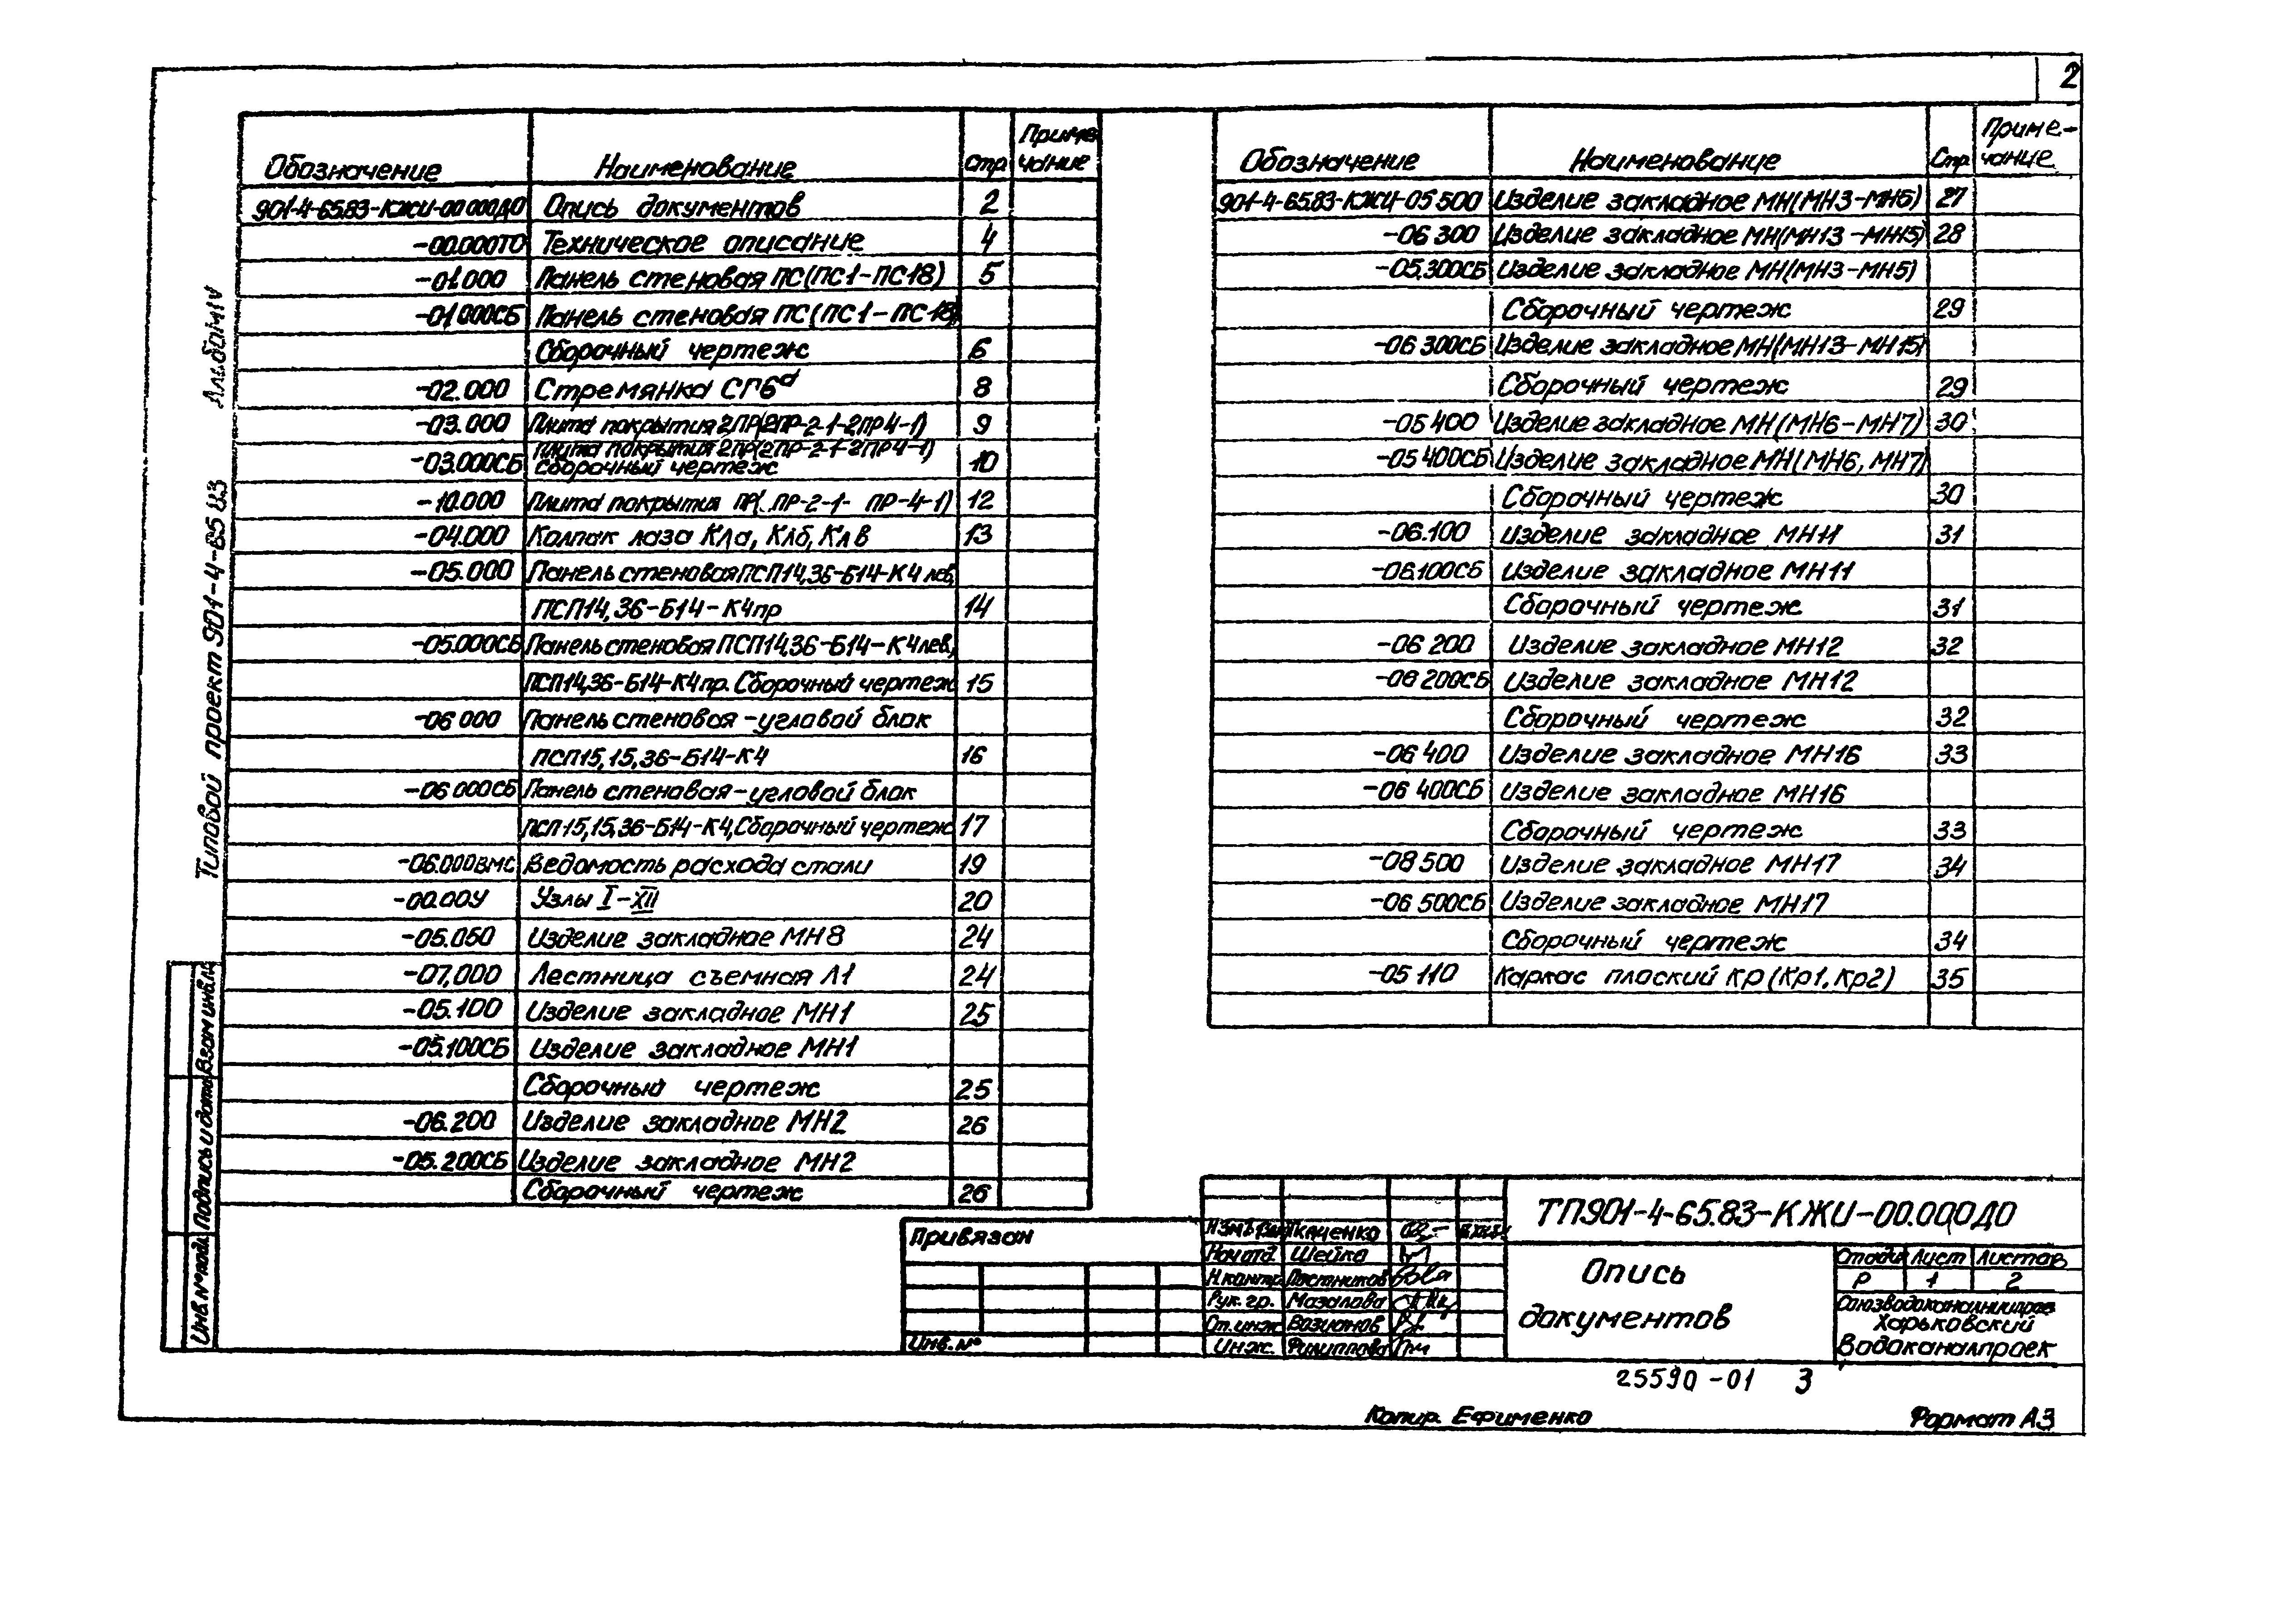 2
Обозначение Наименование Стр Приме чание
901-4-65.83-КЖИ-00.000ДО Опись документов 2
-00.000ТО Техническое описание 4
-01.000 Панель стеновая ПС(ПС1-ПС18) 5
-01.000СБ Панель стеновая ПС(ПС1-ПС18)
Сборочный чертеж 6
-02.000 Стремянка СГ6а 8
-03.000 Плита покрытия 2ПР(2ПР-2-1-2ПР4-1) 9
Плита покрытия 2ПР(2ПР-2-1-2ПР4-1)
-03.000СБ Сборочный чертеж 10
-10.000 Плита покрытия ПР( ПР-2-1- ПР-4-1) 12
-04.000 Колпак лаза КЛа, КЛб, КЛв 13
-05.000 Панель стеновая ПСП14,36-Б14-К4 лев,
ПСП14,36-Б14-К4пр 14
-05.000СБ Панель стеновая ПСП14,36-Б14-К4лев,
ПСП14,36-Б14-К4пр. Сборочный чертеж 15
-06 000 Панель стеновая-угловой блок
ПСП15,15,36-Б14-К4 16
-06 000СБ Панель стеновая-угловой блок
ПСП15,15,36-Б14-К4, Сборочный чертеж 17
-06.000ВМС Ведомость расхода стали 19
-00.00У Узлы I-XII 20
-05.050 Изделие закладное МН8 24
-07,000 Лестница съемная Л1 24
-05.100 Изделие закладное МН1 25
-05.100СБ Изделие закладное МН1
Сборочный чертеж 25
-06.200 Изделие закладное МН2 26
-05.200СБ Изделие закладное МН2
Сборочный чертеж 26
Обозначение Наименование Стр Приме-чание
901-4-65.83-КЖИ-05 500 Изделие закладное МН(МН3-МН5) 27
-06 300 Изделие закладное МН(МН13-МН15) 28
-05.300СБ Изделие закладное МН(МН3-МН5)
Сборочный чертеж 29
-06 300СБ Изделие закладное МН(МН13-МН15)
Сборочный чертеж 29
-05 400 Изделие закладное МН(МН6-МН7) 30
-05 400СБ Изделие закладное МН(МН6, МН7)
Сборочный чертеж 30
-06.100 Изделие закладное МН11 31
-06.100СБ Изделие закладное МН11
Сборочный чертеж 31
-06 200 Изделие закладное МН12 32
-06 200СБ Изделие закладное МН12
Сборочный чертеж 32
-06 400 Изделие закладное МН16 33
-06 400СБ Изделие закладное МН16
Сборочный чертеж 33
-08 500 Изделие закладное МН17 34
-06 500СБ Изделие закладное МН17
Сборочный чертеж 34
-05 110 Каркас плоский КР(Кр1, Кр2) 35
Типовой проект 901-4-65.83 Альбом IV
Взам инв.№
Подпись и дата
Инв. № подл.
Привязан
Инв. №
Ткаченко
Нач отд. Шейко
Н.контр. Постников
Рук. гр. Мазалова
Ст. инж. Возианов
Инж. Филиппова
ТП901-4-65.83-КЖИ-00.000ДО
Опись
документов
Стадия Лист Листов
Р 1 2
Союзводоканалниипроект
Харьковский
Водоканалпроек
25590-01 3
Копир. Ефименко Формат А3